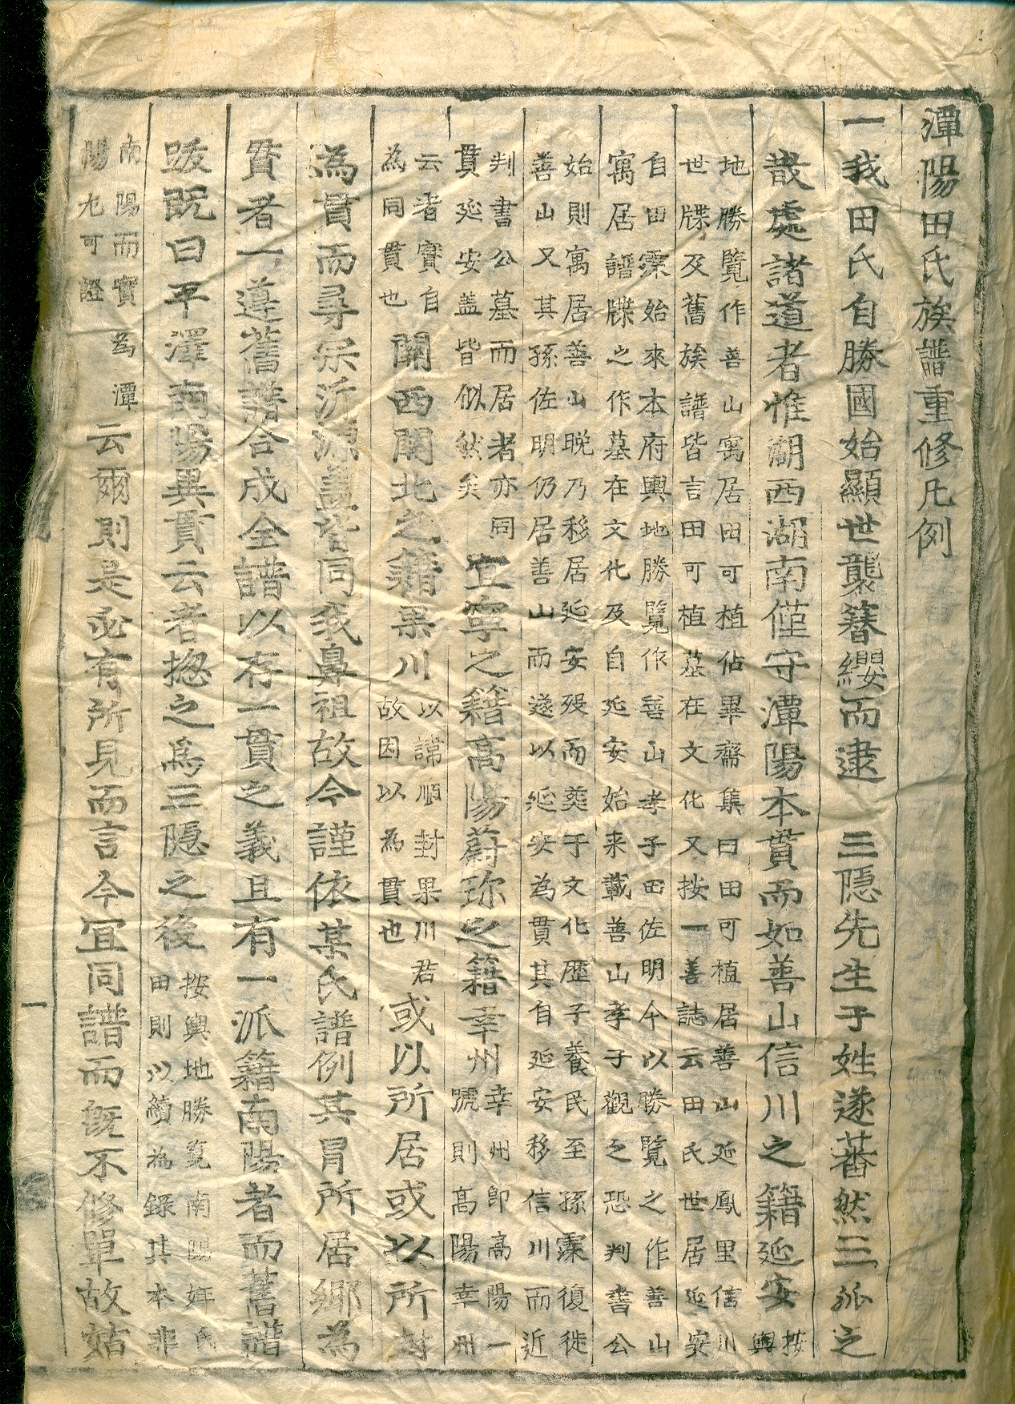 潭陽田氏族譜重修凡例
一我田氏自勝國始顯世襲簪纓而逮 三隱先生子姓遂蕃然三派之
散處諸道者惟湖西湖南僅守潭陽本貫而如善山信川之籍延安按輿
地勝覽作善山寓居田可植佔畢齋集曰田可植居善山延鳳里信川
世牒及舊族譜皆言田可植墓在文化又按一善誌云田氏世居延安
自田霂始來本府輿地勝覽作善山孝子田佐明今以勝覽之作善山
寓居譜牒之作墓在文化及自延安始来載善山孝子觀之恐判書公
始則寓居善山晚乃移居延安歿而葬于文化歷子養民至孫霂復徙
善山又其孫佐明仍居善山而遂以延安為貫其自延安移信川而近
判書公墓而居者亦同
貫延安盖皆似然矣
宜寧之籍高陽蔚珍之籍幸州幸州卽高陽一
號則高陽幸州
云者實自
為同貫也
關西關北之籍果川以諱順封果川君
故因以為貫也
或以所居或以所封
為貫而尋宗泝源盖皆同我鼻祖故今謹依某氏譜例其冒所居鄉為
貫者一遵舊譜合成全譜以存一貫之義且有一派籍南陽者而舊譜
跋既曰平澤南陽異貫云者揔之爲三隱之後按輿地勝覽南陽姓氏
田則以續為錄其本非
南陽而實為潭
陽尤可證
云爾則是必有所見而言今宜同譜而旣不修單故姑
一